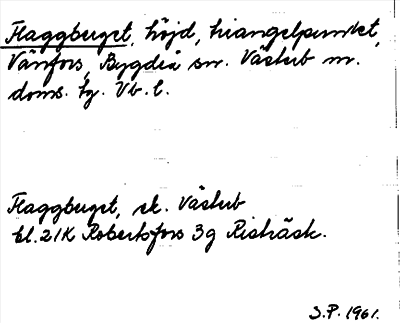 Flaggberget, höjd, triangelpunkt,
Vänfors, Bygdeå sn. Västerb n.
doms. tg. Vb. l.
Flaggberget, ek. Västerb
bl. 21K Robertsfors 3g Risträsk.
S.P. 1961.